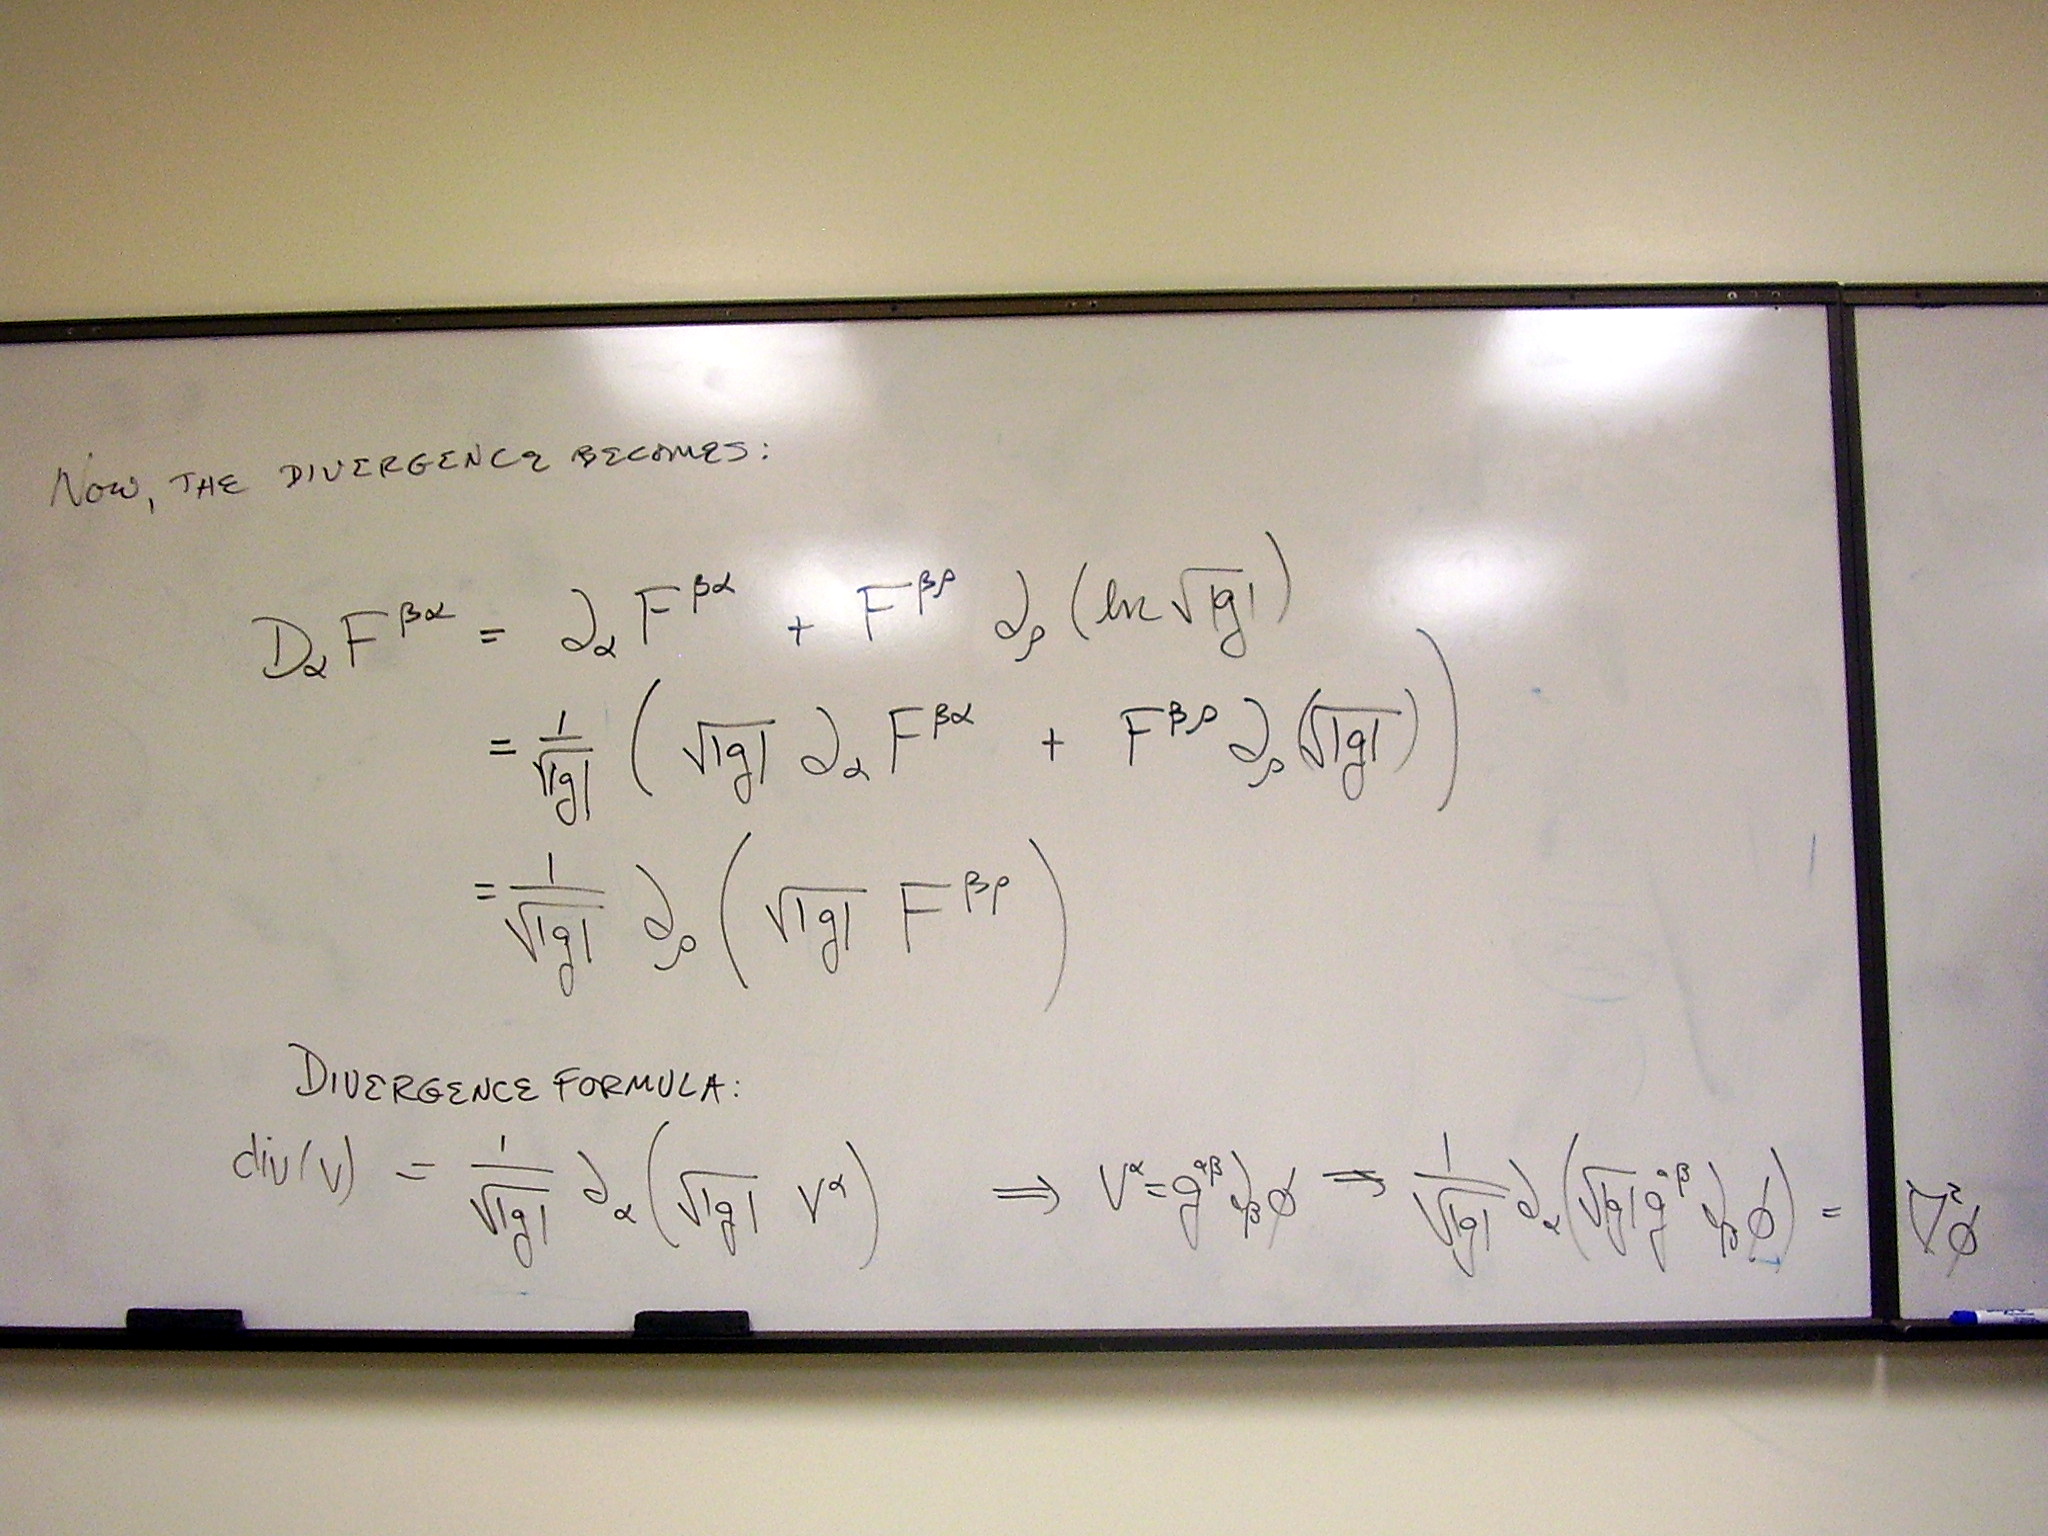 Now, THE DIVERGENCE BECOMES:
D_α F^{βα} = ∂_α F^{βα} + F^{βρ} ∂_ρ (ln √|g|)
= 1/√|g| ( √|g| ∂_α F^{βα} + F^{βρ} ∂_ρ (√|g|) )
= 1/√|g| ∂_ρ ( √|g| F^{βρ} )
DIVERGENCE FORMULA:
div(V) = 1/√|g| ∂_α ( √|g| V^α ) ⇒ V^α = g^{αβ} ∂_β ϕ ⇒ 1/√|g| ∂_α ( √|g| g^{αβ} ∂_β ϕ ) = ∇²ϕ